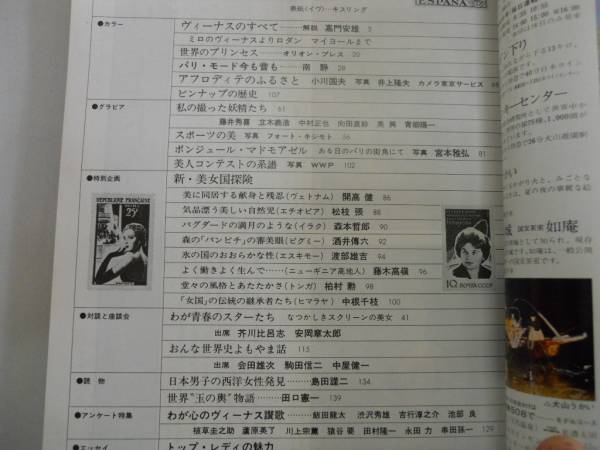 表紙〈イヴ〉…キスリング
ESPAÑA
●カラー
ヴィーナスのすべて……解説 嘉門安雄 5
ミロのヴィーナスよりロダン マイヨールまで
世界のプリンセス……オリオン・プレス 20
パリ・モード今も昔も……南 静 28
アフロディテのふるさと 小川国夫 写真 井上隆夫 カメラ東京サービス 88
ピンナップの歴史 107
●グラビア
私の撮った妖精たち 61
藤井秀喜 立木義浩 中村正也 向田直幹 青柳陽一
スポーツの美 写真 フォート・キシモト 66
ボンジュール・マドモアゼル ある日のパリの街角にて 写真 宮本雅弘 81
美人コンテストの系譜 写真 WWP 102
●特別企画
新・美女国探険
美に同居する献身と残忍(ヴェトナム) 開高 健 86
気品漂う美しい自然児(エチオピア) 松枝 張 88
バグダードの満月のような(イラク) 森本哲郎 90
森の「バンビチ」の審美眼(ピグミー) 酒井傳六 92
氷の国のおおらかな性(エスキモー) 渡部雄吉 94
よく働きよく生んで……(ニューギニア高地人) 藤木高嶺 96
堂々の風格とあたたかさ(トンガ) 柏村 勲 98
「女国」の伝統の継承者たち(ヒマラヤ) 中根千枝 100
REPUBLIQUE FRANÇAISE
10 ПОЧТА СССР
●対談と座談会
わが青春のスターたち なつかしきスクリーンの美女 41
出席 芥川比呂志 安岡章太郎
おんな世界史よもやま話 115
出席 会田雄次 駒田信二 中屋健一
●読 物
日本男子の西洋女性発見……島田謹二 134
世界"玉の輿"物語……田口憲一 139
●アンケート特集
わが心のヴィーナス讃歌……飯田龍太 渋沢秀雄 吉行淳之介 池部 良
植草圭之助 蘆原英了 川上宗薫 猿谷 要 田村隆一 永田 力 串田孫一 129
●エッセイ
トップ・レディの魅力
如庵
国宝茶室
犬山うかい